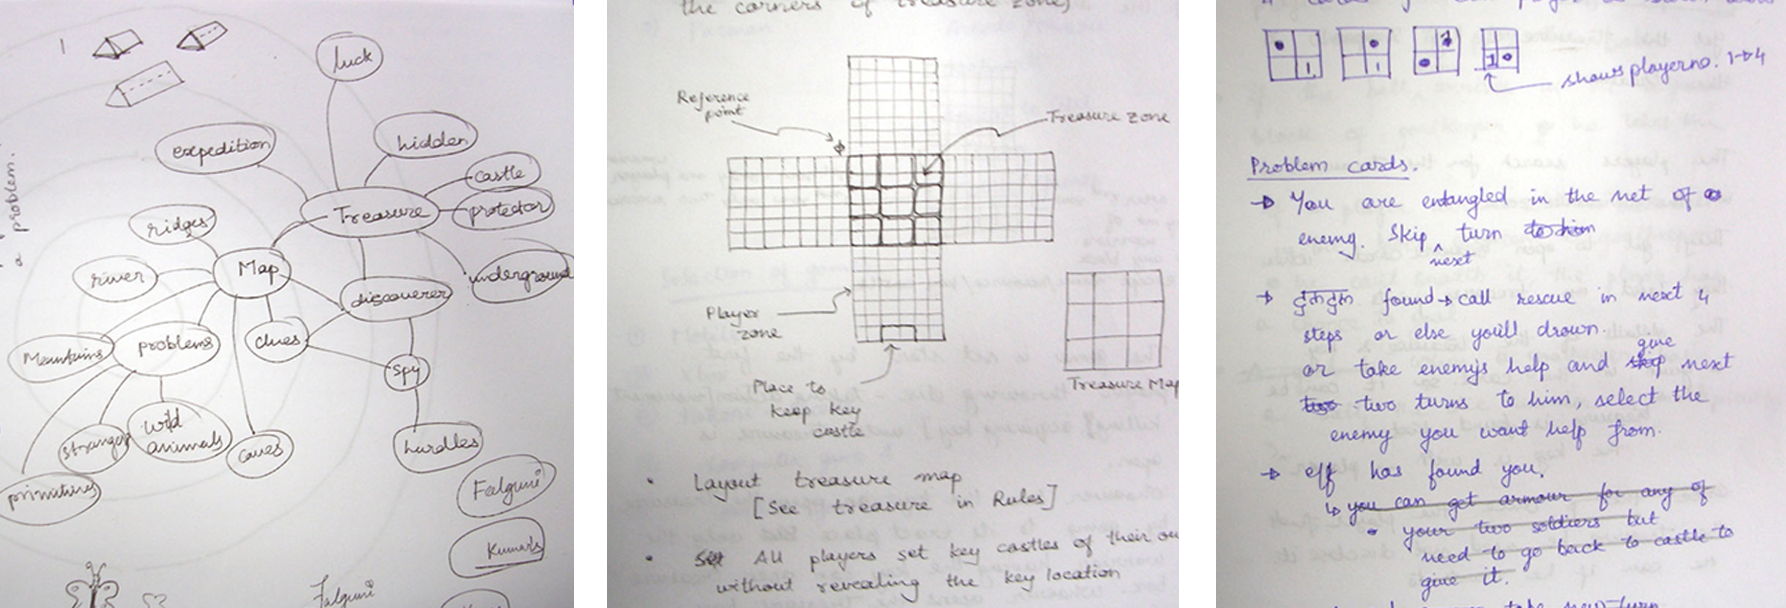 a problem.
luck
expedition
hidden
castle
Treasure
protector
ridges
Map
river
underground
discoverer
Mountains
problems
clues
spy
stranger
wild
animals
caves
hurdles
primitives
Falguni
Kumar
Falguni
the corners of treasure zone)
Reference
point
Treasure zone
Player
zone
Place to
keep key
castle
Treasure Map
• Layout treasure map
[See treasure in Rules]
• All players set key castles of their ow
without revealing the key location
1
1
1
1
shows player no. 1→4
Problem cards.
→ You are entangled in the net of
enemy. Skip next turn
→ दलदल found → call rescue in next 4
steps or else you'll drown.
or take enemy's help and give next
two turns to him, select the
enemy you want help from.
→ elf has found you.
↳ you can get armour for any of
• your two soldiers but
need to go back to castle to
give it.